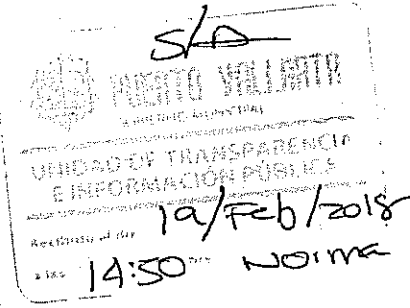 S/A
PUERTO VALLARTA
UNIDAD DE TRANSPARENCIA
E INFORMACIÓN PÚBLICA
Recibido el día 19/Feb/2018
a las 14:50 Norma